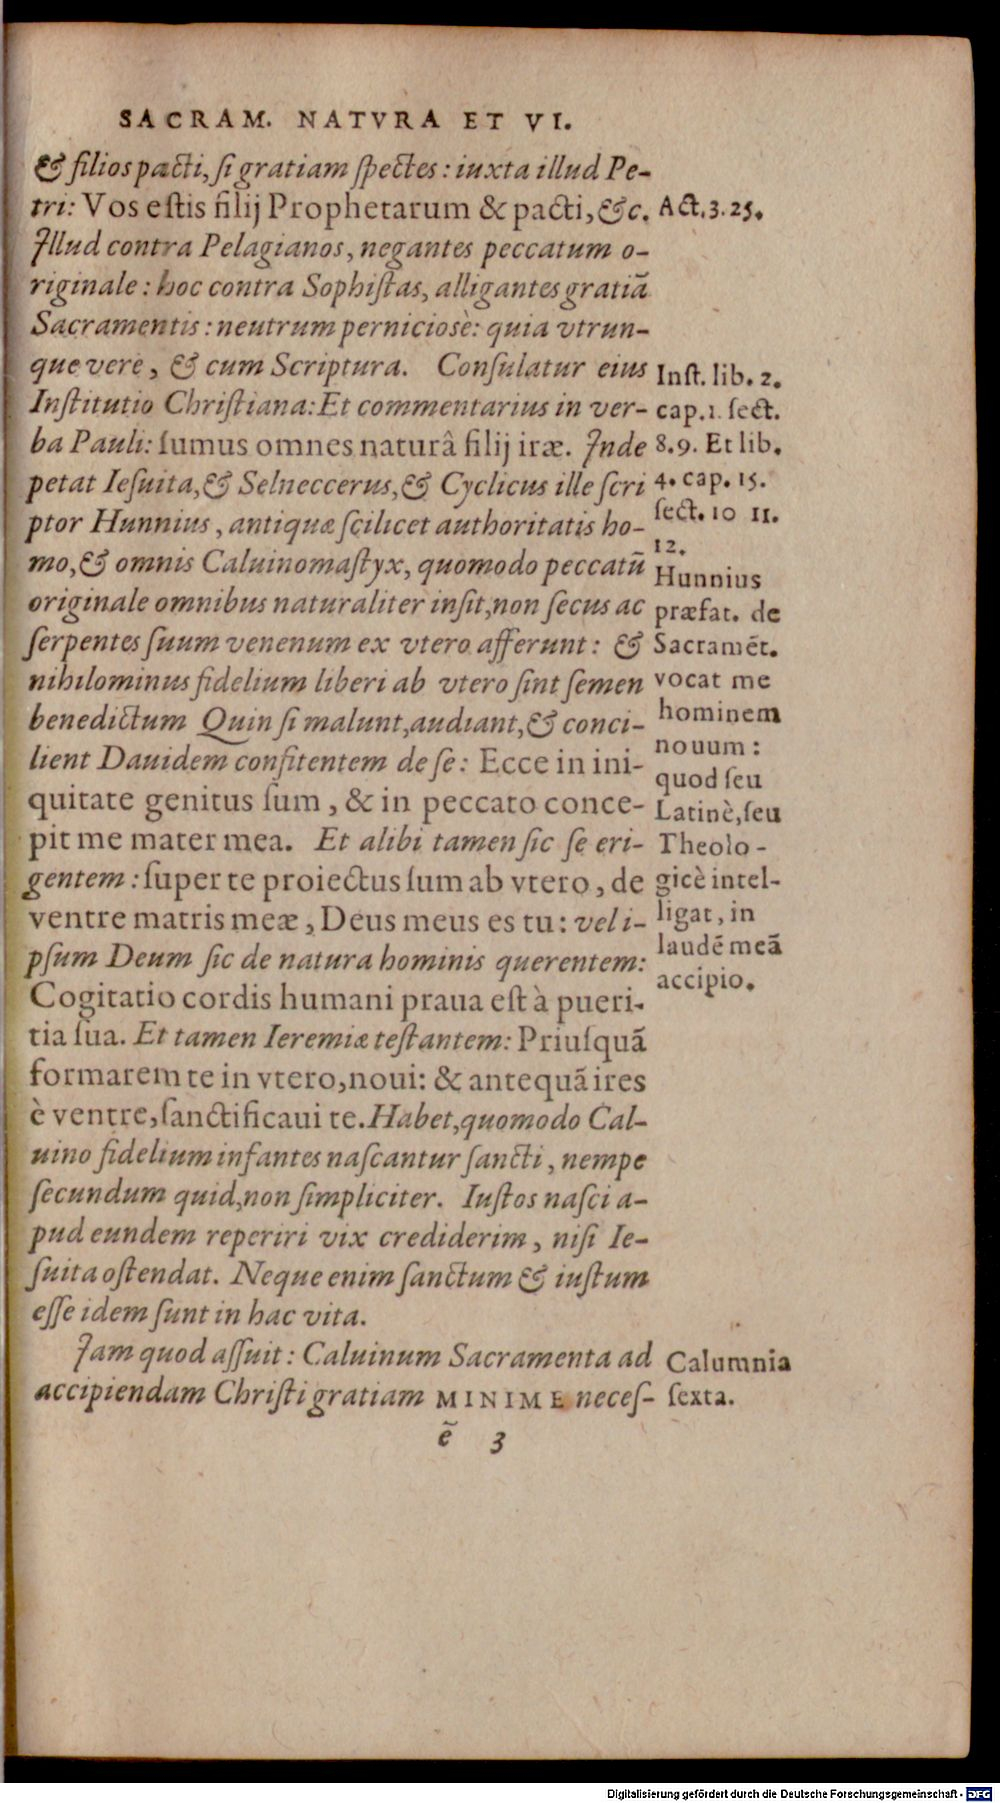 SACRAM. NATVRA ET VI.
& filios pacti, ſi gratiam ſpectes: iuxta illud Pe-
tri: Vos eſtis filij Prophetarum & pacti, &c.
Illud contra Pelagianos, negantes peccatum o-
riginale: hoc contra Sophiſtas, alligantes gratiã
Sacramentis: neutrum perniciosè: quia vtrun-
que vere, & cum Scriptura. Conſulatur eius
Inſtitutio Chriſtiana: Et commentarius in ver-
ba Pauli: ſumus omnes naturâ filij iræ. Inde
petat Ieſuita, & Selneccerus, & Cyclicus ille ſcri
ptor Hunnius, antiquæ ſcilicet authoritatis ho-
mo, & omnis Caluinomaſtyx, quomodo peccatũ
originale omnibus naturaliter inſit, non ſecus ac
ſerpentes ſuum venenum ex vtero afferunt: &
nihilominus fidelium liberi ab vtero ſint ſemen
benedictum Quin ſi malunt, audiant, & conci-
lient Dauidem confitentem de ſe: Ecce in ini-
quitate genitus ſum, & in peccato conce-
pit me mater mea. Et alibi tamen ſic ſe eri-
gentem: ſuper te proiectus ſum ab vtero, de
ventre matris meæ, Deus meus es tu: vel i-
pſum Deum ſic de natura hominis querentem:
Cogitatio cordis humani praua eſt à pueri-
tia ſua. Et tamen Ieremiæ teſtantem: Priuſquã
formarem te in vtero, noui: & antequã ires
è ventre, ſanctificaui te. Habet, quomodo Cal-
uino fidelium infantes naſcantur ſancti, nempe
ſecundum quid, non ſimpliciter. Iuſtos naſci a-
pud eundem reperiri vix crediderim, niſi Ie-
ſuita oſtendat. Neque enim ſanctum & iuſtum
eſſe idem ſunt in hac vita.
Iam quod aſſuit: Caluinum Sacramenta ad
accipiendam Chriſti gratiam MINIME neceſ-
ẽ 3
Act. 3. 25.
Inſt. lib. 2.
cap. 1. ſect.
8. 9. Et lib.
4. cap. 15.
ſect. 10 11.
12.
Hunnius
præfat. de
Sacramẽt.
vocat me
hominem
nouum:
quod ſeu
Latinè, ſeu
Theolo-
gicè intel-
ligat, in
laudẽ meã
accipio.
Calumnia
ſexta.
Digitalisierung gefördert durch die Deutsche Forschungsgemeinschaft - DFG